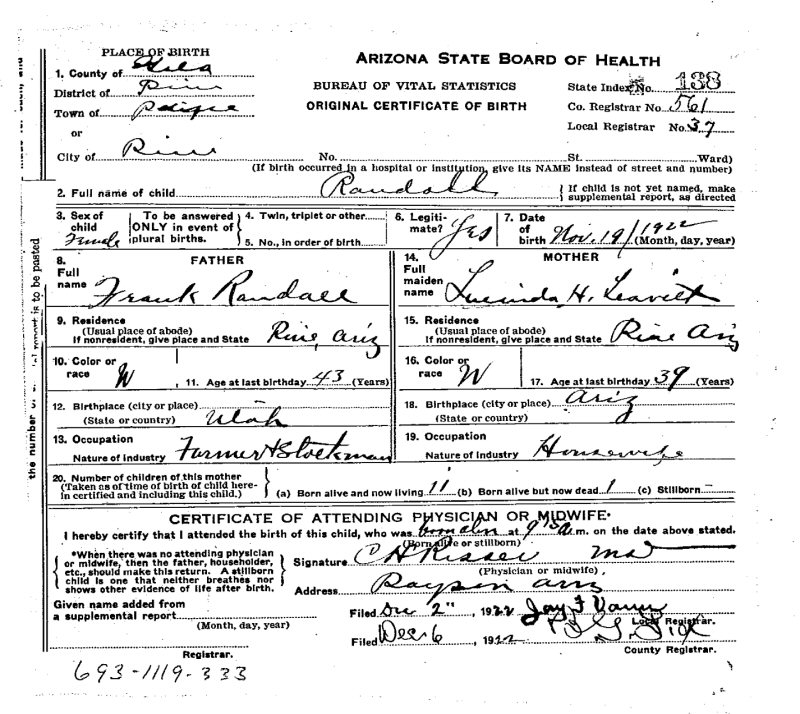 PLACE OF BIRTH
ARIZONA STATE BOARD OF HEALTH
1. County of Gila
BUREAU OF VITAL STATISTICS
State Index No. 138
District of Pine
ORIGINAL CERTIFICATE OF BIRTH
Co. Registrar No. 561
Town of
Local Registrar No. 37
or
City of Pine No. St. Ward)
(If birth occurred in a hospital or institution, give its NAME instead of street and number)
2. Full name of child Randall { If child is not yet named, make supplemental report, as directed
3. Sex of child Female
To be answered ONLY in event of plural births.
4. Twin, triplet or other
5. No., in order of birth
6. Legitimate? Yes
7. Date of birth Nov. 19/1922 (Month, day, year)
8. FATHER
Full name Frank Randall
14. MOTHER
Full maiden name Lucinda H. Leavitt
9. Residence
(Usual place of abode)
If nonresident, give place and State Pine, Ariz
15. Residence
(Usual place of abode)
If nonresident, give place and State Pine Ariz
10. Color or race W
11. Age at last birthday 43 (Years)
16. Color or race W
17. Age at last birthday 39 (Years)
12. Birthplace (city or place)
(State or country) Utah
18. Birthplace (city or place) Ariz
(State or country)
13. Occupation
Nature of Industry Farmer & Stockman
19. Occupation
Nature of Industry Housewife
20. Number of children of this mother
(Taken as of time of birth of child herein certified and including this child.)
(a) Born alive and now living 11 (b) Born alive but now dead 1 (c) Stillborn –
CERTIFICATE OF ATTENDING PHYSICIAN OR MIDWIFE*
I hereby certify that I attended the birth of this child, who was born alive at 9 a.m. on the date above stated.
(Born alive or stillborn)
*When there was no attending physician
or midwife, then the father, householder,
etc., should make this return. A stillborn
child is one that neither breathes nor
shows other evidence of life after birth.
Signature C H Risser MD
(Physician or midwife)
Address Payson Ariz
Given name added from
a supplemental report
(Month, day, year)
Registrar.
Filed Dec 2" 1922 Jay F
Local Registrar.
Filed Dec 6 1922
County Registrar.
693-1119-333
the number o report is to be pasted